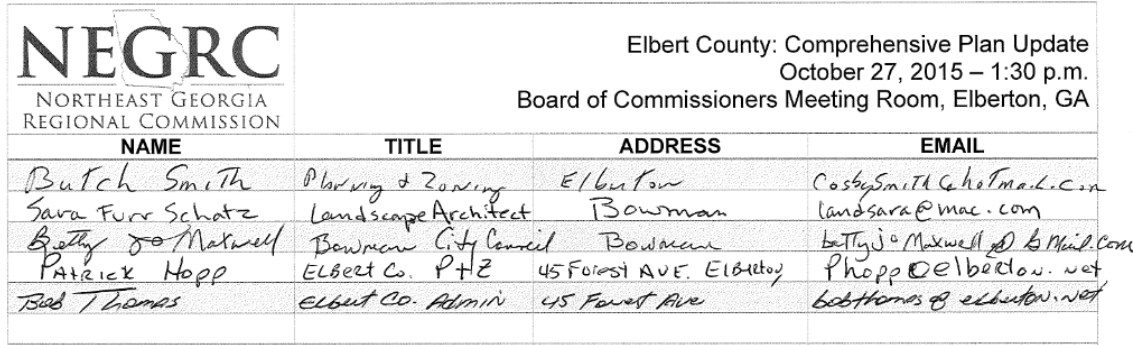 NEGRC
NORTHEAST GEORGIA
REGIONAL COMMISSION
Elbert County: Comprehensive Plan Update
October 27, 2015 – 1:30 p.m.
Board of Commissioners Meeting Room, Elberton, GA
NAME TITLE ADDRESS EMAIL
Butch Smith Planning & Zoning Elberton CosbySmith@hotmail.com
Sara Furr Schatz Landscape Architect Bowman landsara@mac.com
Betty Jo Maxwell Bowman City Council Bowman bettyjo Maxwell @ GMail.com
PATRICK HOPP ELBERT Co. P+Z 45 Forest AVE. ELBERTON Phopp@elberton.net
Bob Thomas Elbert Co. Admin 45 Forest Ave bobthomas@elberton.net